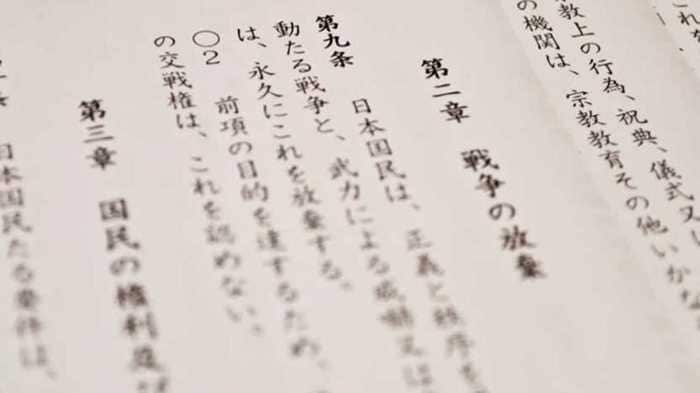 これを
教上の行為、祝典、儀式又
の機関は、宗教教育その他いかな
第二章 戦争の放棄
第九条 日本国民は、正義と秩序を
動たる戦争と、武力による威嚇又は
は、永久にこれを放棄する。
○2 前項の目的を達するため、
の交戦権は、これを認めない。
第三章 国民の権利及び
日本国民たる要件は、